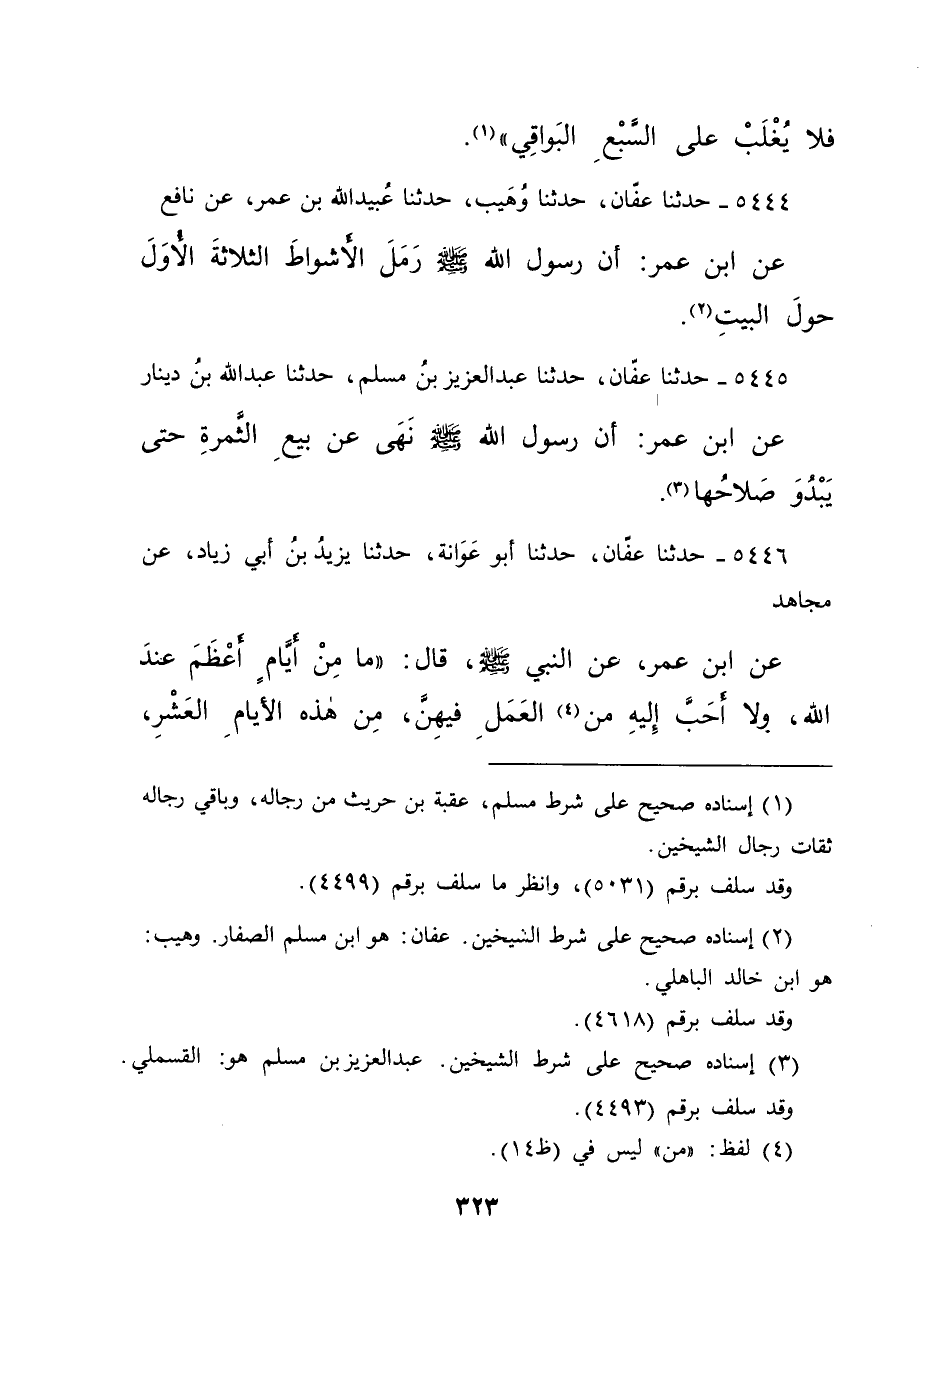 فلا يُغْلَبْ على السَّبْعِ البَواقِي»(١).
٥٤٤٤ ـ حدثنا عفّان، حدثنا وُهَيب، حدثنا عُبيدالله بن عمر، عن نافع
عن ابن عمر: أن رسول الله ﷺ رَمَلَ الأَشواطَ الثلاثةَ الأُوَلَ
حولَ البيتِ(٢).
٥٤٤٥ ـ حدثنا عفّان، حدثنا عبدالعزيز بنُ مسلم، حدثنا عبدالله بنُ دينار
عن ابن عمر: أن رسول الله ﷺ نَهَى عن بيعِ الثَّمرةِ حتى
يَبْدُوَ صَلاحُها(٣).
٥٤٤٦ ـ حدثنا عفّان، حدثنا أبو عَوَانة، حدثنا يزيدُ بنُ أبي زياد، عن
مجاهد
عن ابن عمر، عن النبي ﷺ، قال: «ما مِنْ أَيَّامٍ أَعْظَمَ عندَ
الله، ولا أَحَبَّ إِليهِ من(٤) العَمَلِ فيهِنَّ، مِن هٰذه الأيامِ العَشْرِ،
(١) إسناده صحيح على شرط مسلم، عقبة بن حريث من رجاله، وباقي رجاله
ثقات رجال الشيخين.
وقد سلف برقم (٥٠٣١)، وانظر ما سلف برقم (٤٤٩٩).
(٢) إسناده صحيح على شرط الشيخين. عفان: هو ابن مسلم الصفار. وهيب:
هو ابن خالد الباهلي.
وقد سلف برقم (٤٦١٨).
(٣) إسناده صحيح على شرط الشيخين. عبدالعزيز بن مسلم هو: القسملي.
وقد سلف برقم (٤٤٩٣).
(٤) لفظ: «من» ليس في (ظ١٤).
٣٢٣